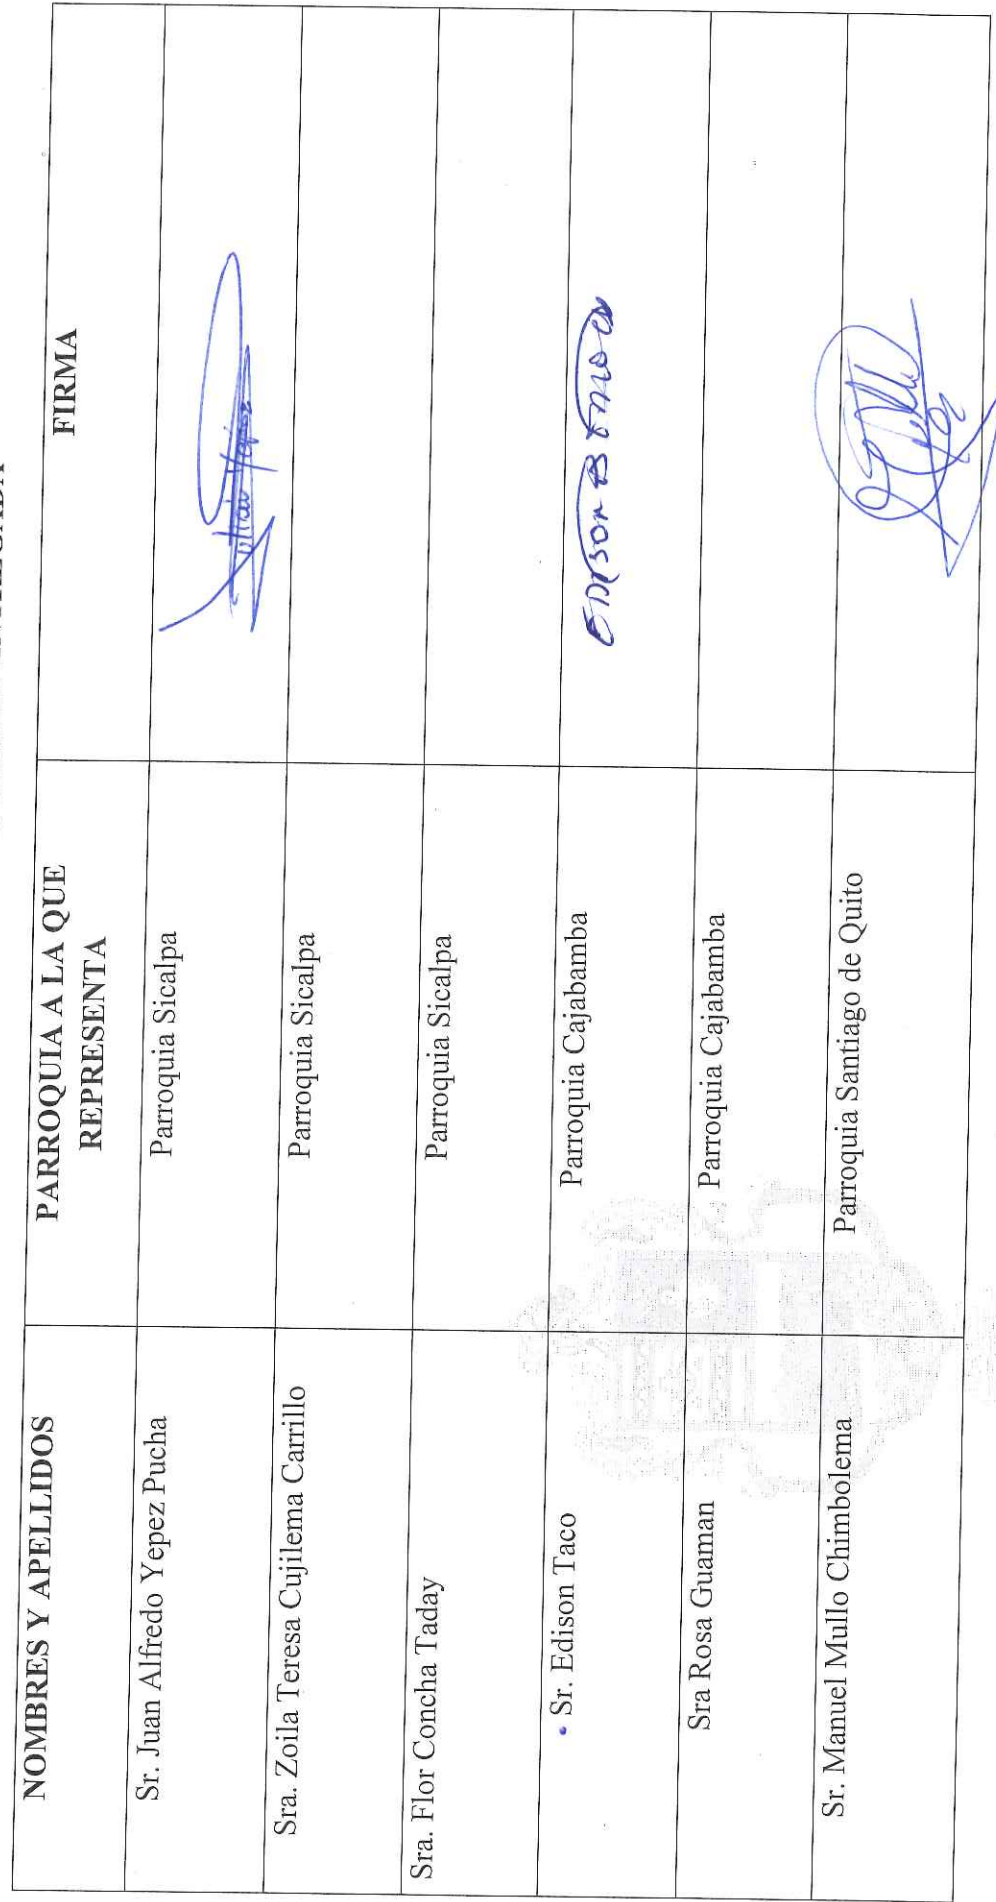 NOMBRES Y APELLIDOS PARROQUIA A LA QUE REPRESENTA FIRMA
Sr. Juan Alfredo Yepez Pucha Parroquia Sicalpa
Sra. Zoila Teresa Cujilema Carrillo Parroquia Sicalpa
Sra. Flor Concha Taday Parroquia Sicalpa
Sr. Edison Taco Parroquia Cajabamba
Sra Rosa Guaman Parroquia Cajabamba
Sr. Manuel Mullo Chimbolema Parroquia Santiago de Quito